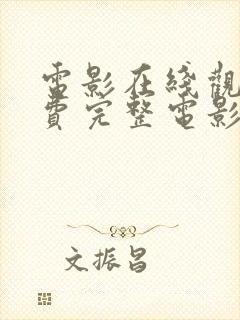 電影在綫觀
費完整電影
文振昌